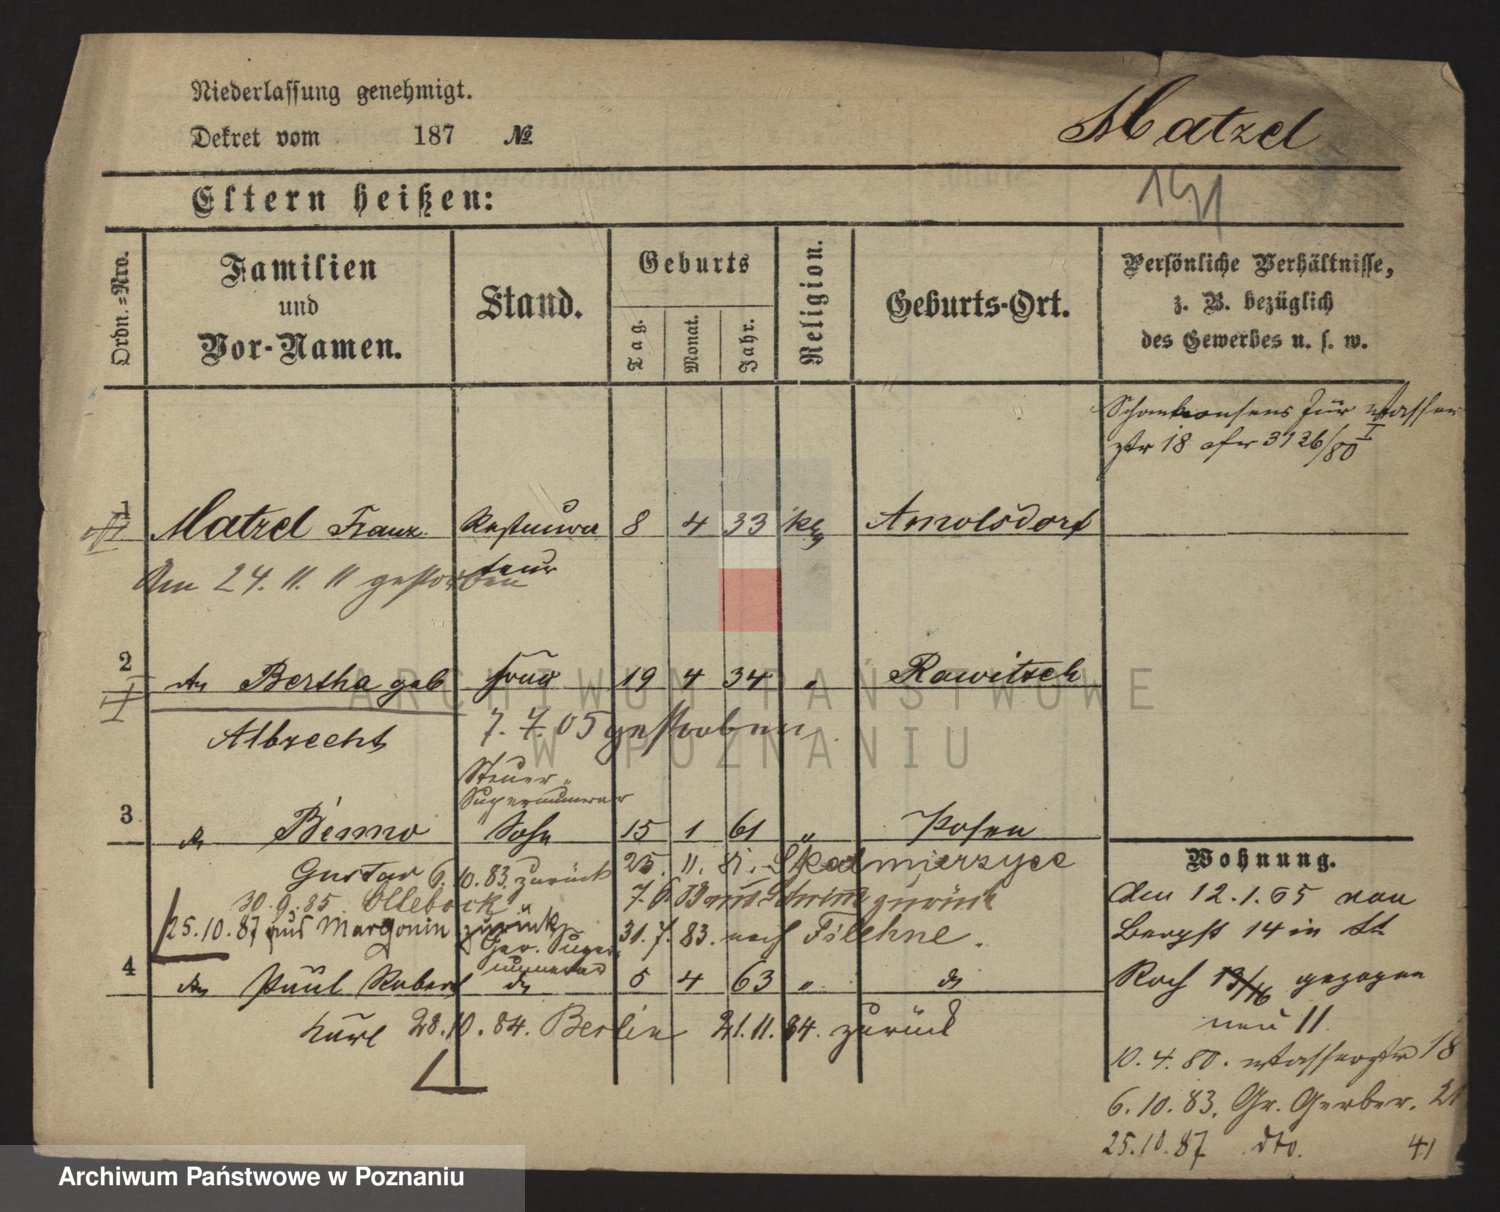 Niederlassung genehmigt.
Dekret vom 187 №
Matzel
Eltern heißen:
Ordn.=Nro.
Familien
und
Vor-Namen.
Stand.
Geburts
Tag.
Monat.
Jahr.
Religion.
Geburts-Ort.
Persönliche Verhältnisse,
z. B. bezüglich
des Gewerbes u. s. w.
für Wasser
str 18 3126/80 I
1
Matzel Franz Restaura 8 4 33 Arnolsdorf
teur
Am 24. 11. 11 gestorben
2
Bertha geb Frau 19 4 34 " Rawitsch
Albrecht 7. 7. 05 gestorben
Steuer-
Supernumerar
3
Benno Sohn 15 1 61 " Posen
Gustav 6.10.83. zurück 25. 11. Skalmierzyce
30.9.85. zurück
25.10.87 aus Margonin zurück 31. 7. 83. nach Filehne.
4
Paul Robert 5 4 63 "
Karl 28.10.84. Berlin 21.11.84. zurück
Wohnung.
den 12.1.65 von
Bergstr 14 in St
Roch 13/16 gezogen
neu 11.
10.4.80. Wasserstr 18
6.10.83. Gr. Gerber. 21
25.10.87. dto. 41
ARCHIWUM PAŃSTWOWE
W POZNANIU
Archiwum Państwowe w Poznaniu